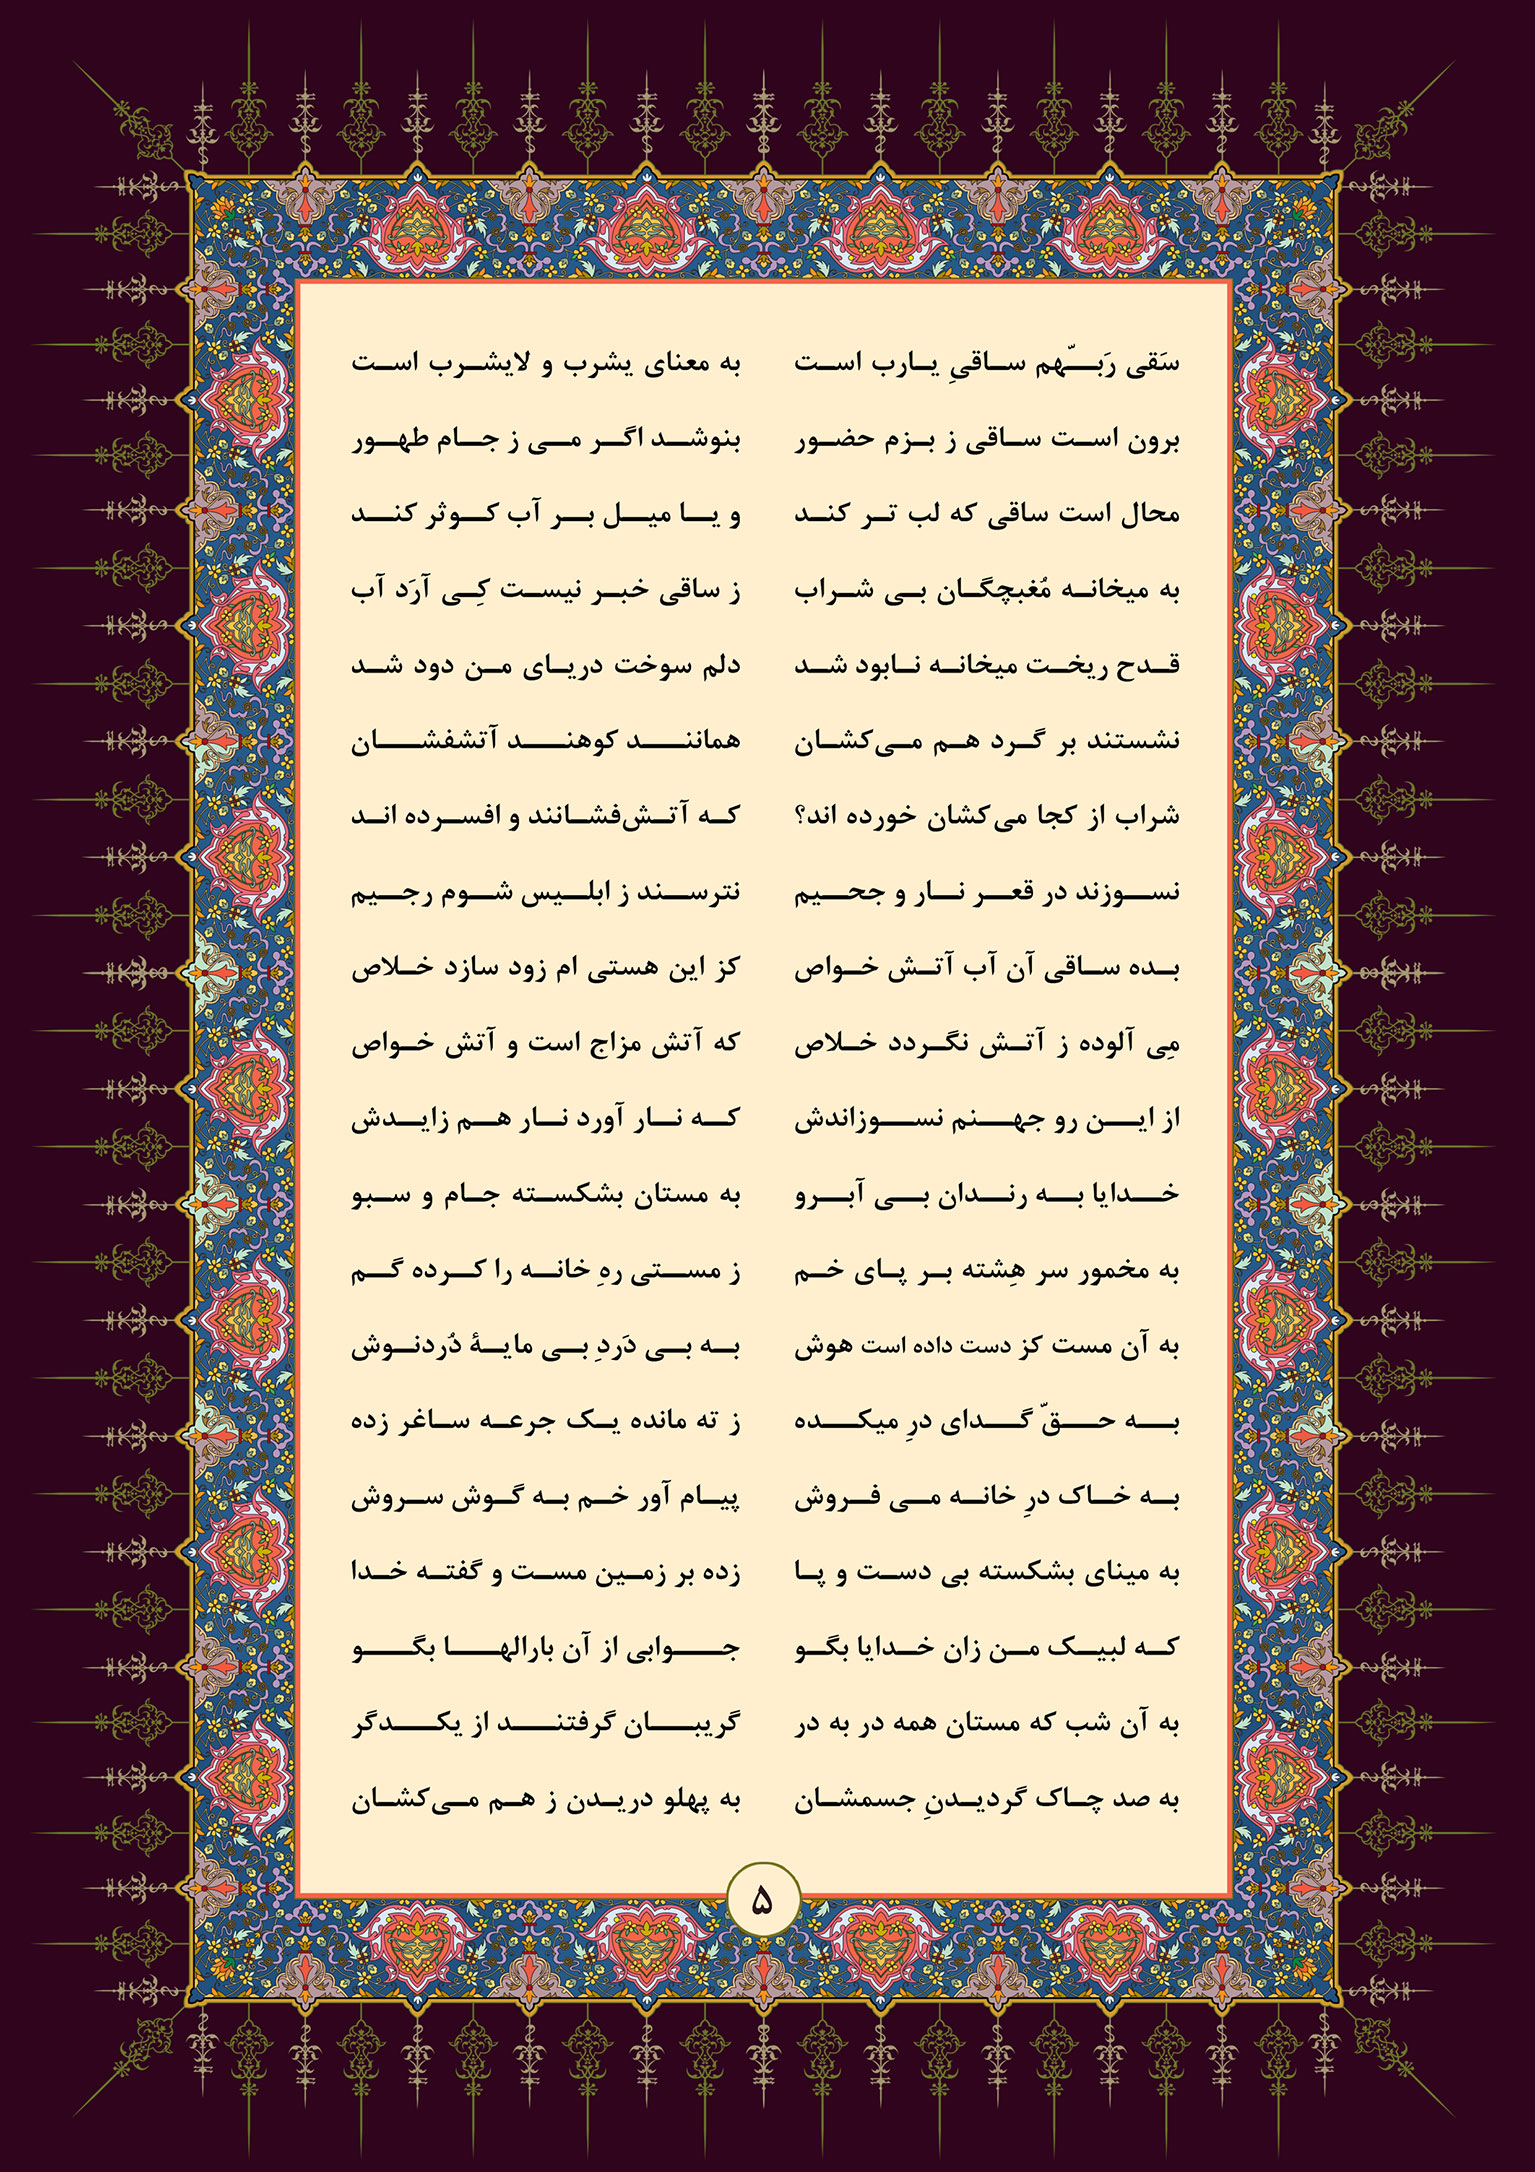 سَقی رَبّهم ساقیِ یارب است به معنای یشرب و لایشرب است
برون است ساقی ز بزم حضور بنوشد اگر می ز جام طهور
محال است ساقی که لب تر کند و یا میل بر آب کوثر کند
به میخانه مُغبچگان بی شراب ز ساقی خبر نیست کِی آرَد آب
قدح ریخت میخانه نابود شد دلم سوخت دریای من دود شد
نشستند بر گرد هم می‌کشان همانند کوهند آتشفشان
شراب از کجا می‌کشان خورده اند؟ که آتش‌فشانند و افسرده اند
نسوزند در قعر نار و جحیم نترسند ز ابلیس شوم رجیم
بده ساقی آن آب آتش خواص کز این هستی ام زود سازد خلاص
مِی آلوده ز آتش نگردد خلاص که آتش مزاج است و آتش خواص
از این رو جهنم نسوزاندش که نار آورد نار هم زایدش
خدایا به رندان بی آبرو به مستان بشکسته جام و سبو
به مخمور سر هِشته بر پای خم ز مستی رهِ خانه را کرده گم
به آن مست کز دست داده است هوش به بی دَردِ بی مایهٔ دُردنوش
به حقّ گدای درِ میکده ز ته مانده یک جرعه ساغر زده
به خاک درِ خانه می فروش پیام آور خم به گوش سروش
به مینای بشکسته بی دست و پا زده بر زمین مست و گفته خدا
که لبیک من زان خدایا بگو جوابی از آن بارالها بگو
به آن شب که مستان همه در به در گریبان گرفتند از یکدگر
به صد چاک گردیدنِ جسمشان به پهلو دریدن ز هم می‌کشان
۵